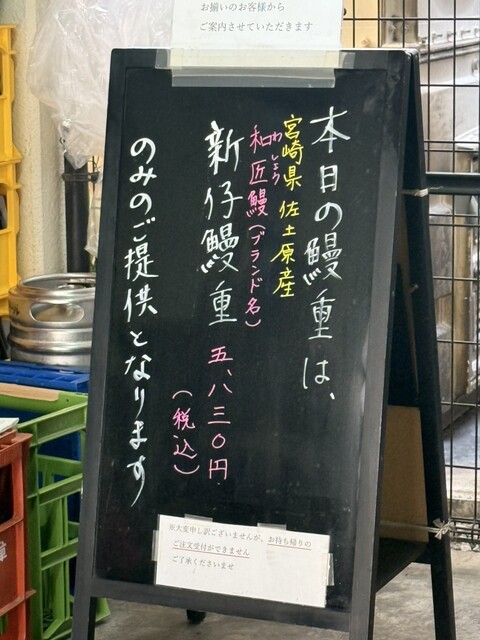 お揃いのお客様から
ご案内させていただきます
本日の鰻重は、
宮崎県 佐土原産
わしょう
和匠鰻(ブランド名)
新仔鰻重 五、八三〇円
(税込)
のみのご提供となります
※大変申し訳ございませんが、お持ち帰りの
ご注文受付ができません
ご了承くださいませ